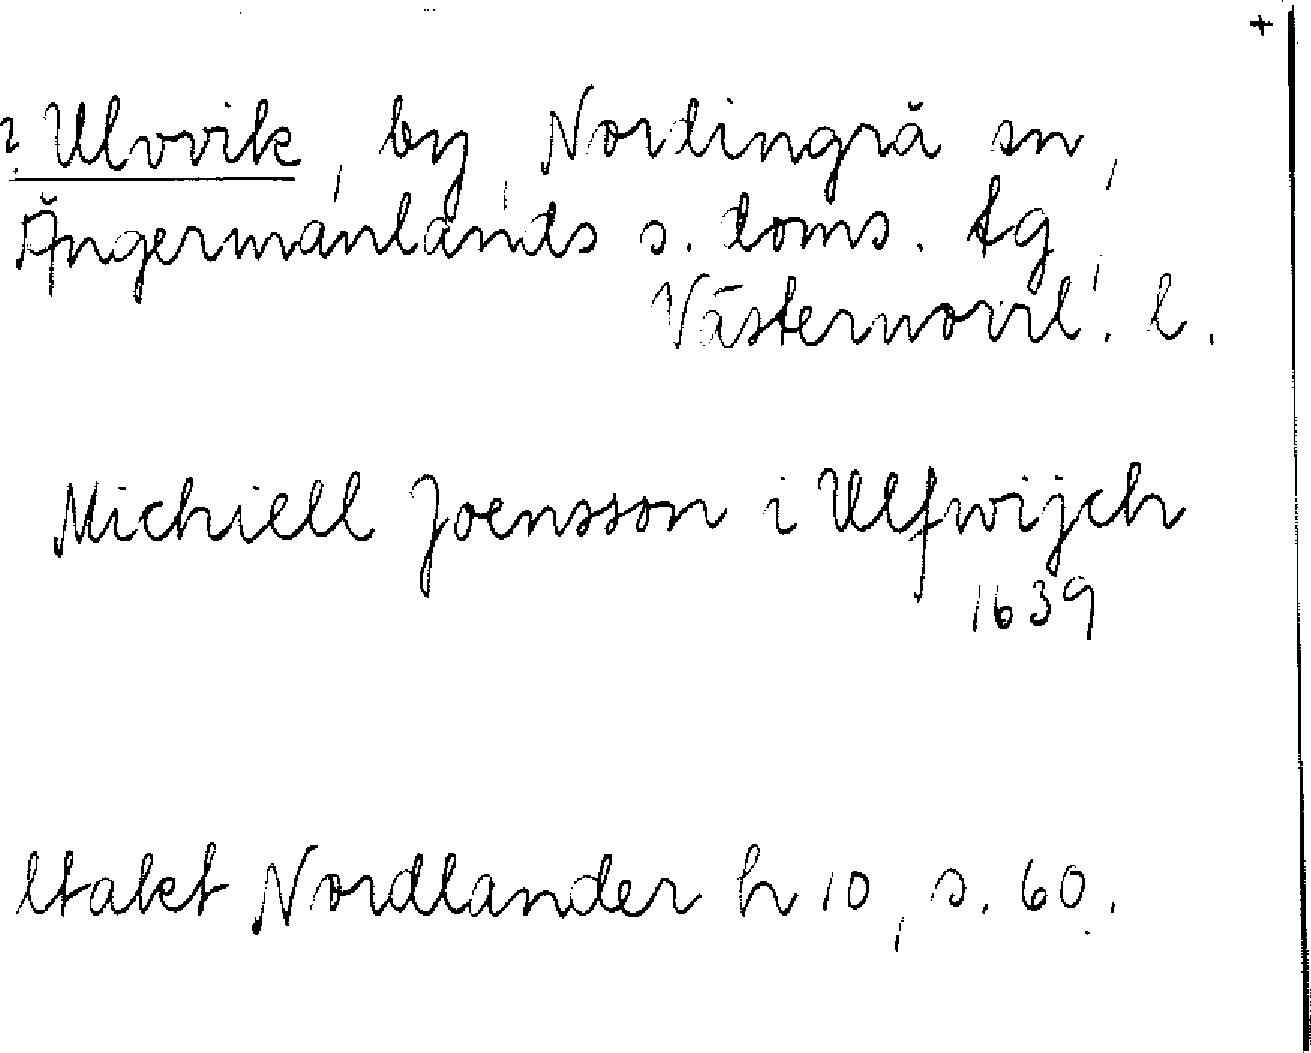 +
? Ulvvik, by, Nordingrå sn,
Ångermanlands s. doms. tg,
Västernorrl. l.
Michiell Joensson i Ulfwijch
1639
ltakt Nordlander h 10, s. 60.